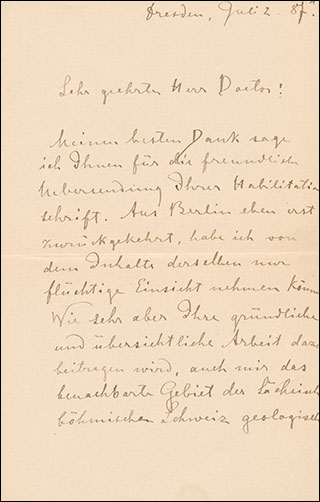 Dresden, Juli 2. 87.
Sehr geehrter Herr Doctor!
Meinen besten Dank sage
ich Ihnen für die freundlich
Uebersendung Ihrer Habilitation
schrift. Aus Berlin eben erst
zurückgekehrt, habe ich von
dem Inhalte derselben nur
flüchtige Einsicht nehmen könne
Wie sehr aber Ihre gründliche
und übersichtliche Arbeit daz
beitragen wird, auch mir das
benachbarte Gebiet der Sächsisch
böhmischen Schweiz geologisch